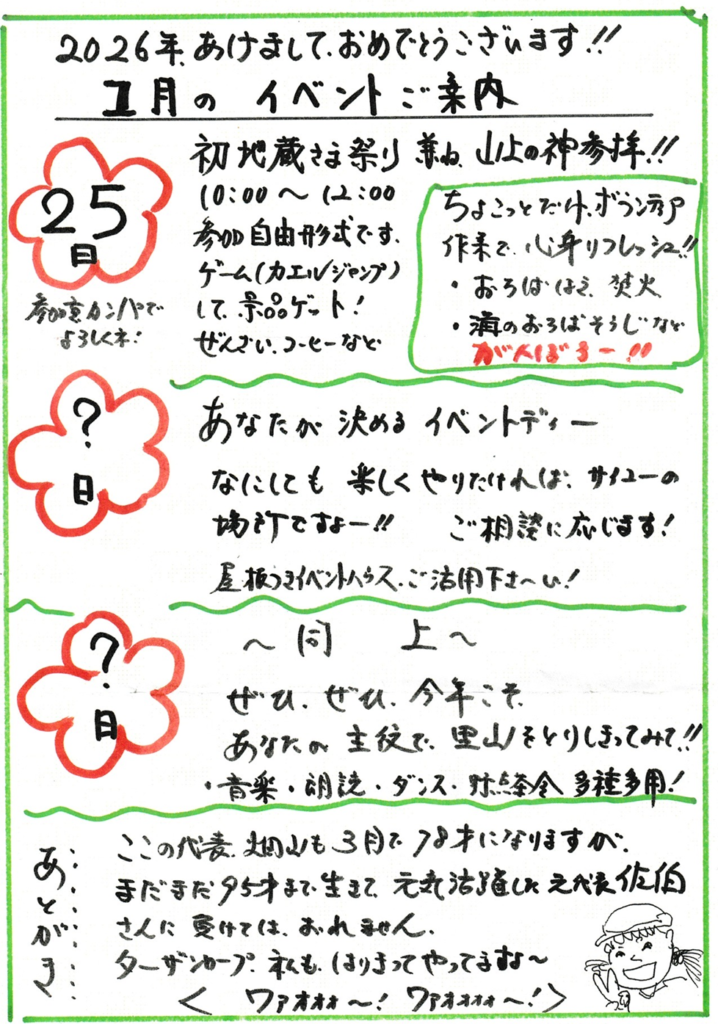 2026年、あけまして、おめでとうございます!!
1月の イベントご案内
25日
参加費カンパで
よろしくネ!
初地蔵さま祭り 兼ね、山上の神参拝!!
10:00〜12:00
参加自由形式です、
ゲーム(カエルジャンプ)
して、景品ゲット!
ぜんざい、コーヒーなど
ちょこっとだけ、ボランティア
作業で、心身リフレッシュ!!
・おちばはき、焚火
・溝のおちばそうじなど
がんばろー!!
?日
あなたが 決める イベントディー
なにしても 楽しくやりたければ、サイユーの
場所ですよー!! ご相談に応じます!
屋根つきイベントハウス、ご活用下さ〜い!
?日
〜 同 上 〜
ぜひ、ぜひ、今年こそ、
あなたが 主役で、里山をとりしきってみて!!
・音楽・朗読・ダンス・野点茶会 多種多用!
あとがき
ここの代表、畑山も3月で78才になりますが、
まだまだ95才まで生きて、元気活躍した元代表佐伯
さんに 負けては、おれません、
ターザンカープ、私も、はりきってやってますな〜
< ワァオォォ〜! ワァオォォォ〜!>